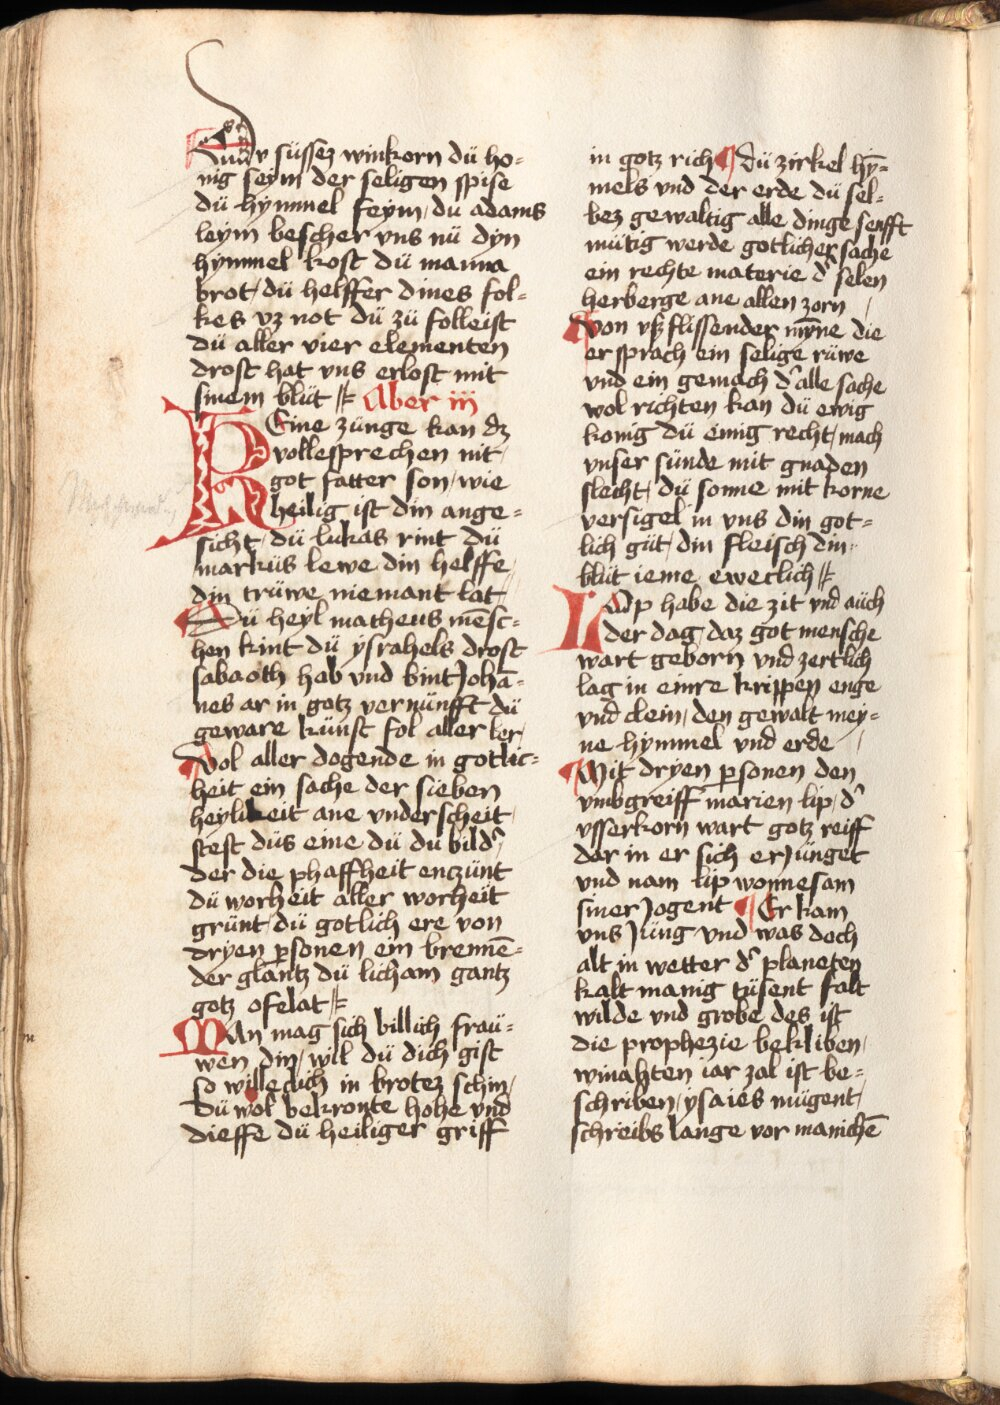 Duu v süssez winkorn dü ho-
nig seym der seligen spise
dü hymmel feym / du adams
leym bescher vns nü dyn
hymmel kost dü manna
brot / dü helffer dines fol-
kes vz not dü zü folleist
dü aller vier elementen
drost hat vns erlost mit
sinem blüt Aber iij
Keine zünge kan dz
vollesprechen nit
got fatter son / wie
heilig ist din ange-
sicht / dü lukas rint dü
markus lewe din helffe
din trüwe niemant lat
Dü heyl matheus mēsc-
hen kint dü ysrahels drost
sabaoth hab vnd bint Johā-
nes ar in gotz vernünfft dü
geware künst fol aller ler
Vol aller dogende in gotlic-
heit ein sache der sieben
heylikeit ane vnderscheit
stest düs eine dü du bild'
der die phaffheit enczünt
dü worheit aller worheit
grünt / dü gotlich ere von
dryen ꝑsonen ein brennē-
der glantz dü licham gantz
gotz ofelat
Man mag sich billich fraü-
wen din / will dü dich gist
so willeclich in brotez schin /
Dü wol bekronte hohe vnd
dieffe dü heiliger griff
in gotz rich dü zirkel hȳ-
mels vnd der erde dü sel-
bez gewaltig alle dinge senfft
mütig werde gotlicher sache
ein rechte materie d' selen
herberge ane allen zorn
Von vßflissender mȳne die
er sprach ein selige rüwe
vnd ein gemach d' alle sache
wol richten kan dü ewig
konig dü einig recht / mach
vnser sünde mit gnaden
slecht / dü sonne mit korne
versigel in vns din got-
lich güt / din fleisch din
blüt ieme eweclich
Lop habe die zit vnd aüch
der dag / daz got mensche
wart geborn vnd zertlich
lag in einre krippen enge
vnd clein / den gewalt mey-
ne hymmel vnd erde
Mit dryen ꝑsonen den
vmbgreiff marien lip / d'
vsserkorn wart gotz reiff
dar in er sich erJünget
vnd nam lip wonnesam
siner Jogent Er kam
vns Jüng vnd was doch
alt in wetter d' planeten
kalt manig tüsent falt
wilde vnd grobe des ist
die prophezie bekliben /
winahten iar zal ist be-
schriben / ysaies mügent /
schreibs lange vor manichē